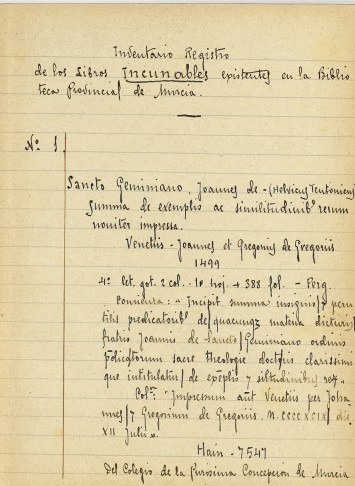 Inventario Registro
de los Libros Incunables existentes en la Biblio
teca Provincial de Murcia.
Nº 1.
Sancto Geminiano, Joannes de - (Helvicus Teutonicus)
Summa de exemplis ac similitudinibº rerum
noviter impressa.
Venetiis - Joannes et Gregorius de Gregoriis
1499
4º let. got. 2 col. - 10 hoj + 388 fol. -
Comienza: "Incipit summa insignis
tilis predicatoribº de quacunqz materia dicturis
fratris Joannis de Sancto Geminiano ordinis
sacre theologie clarissimi
que intitulatur de
Colº. "Impressum aūt Venetiis per Joha
nes Gregorium de Gregoriis. M.CCCCXCIX die
XII Julii".
Hain - 7547
Del Colegio de la Purísima Concepción de Murcia